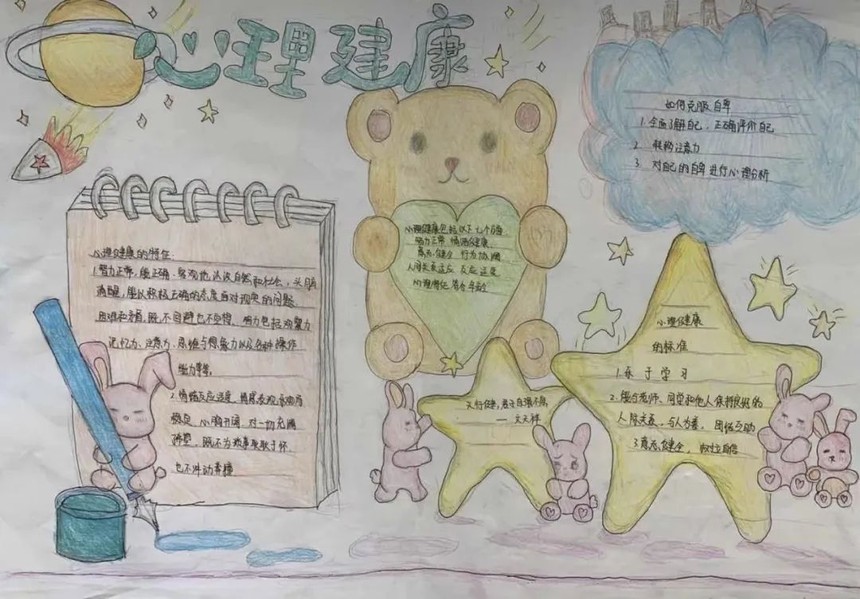 心理建康
心理健康的特征:
1.智力正常,能正确、客观地认识自然和社会,头脑
清醒,能以积极正确的态度面对现实的问题
困难和矛盾,既不回避也不空想、智力包括观察力
记忆力、注意力、思维与想象力以及各种操作
能力等等。
2.情绪反应适度、情绪表现乐观而
稳定,心胸开阔,对一切充满
希望,既不为琐事耿耿于怀.
也不冲动莽撞
心理健康包括以下七个方面
智力正常、情绪健康、
意志健全 行为协调
人际关系适应 反应适度
心理特征符合年龄
如何克服自卑
1.全面了解自己,正确评价自己
2. 转移注意力
3. 对自己的自卑进行心理分析
天行健,君子自强不息
— 文天祥
心理健康
的标准
1.乐于学习
2.能与老师、同学和他人保持良好的
人际关系,与人为善,团结互助
3.意志健全,